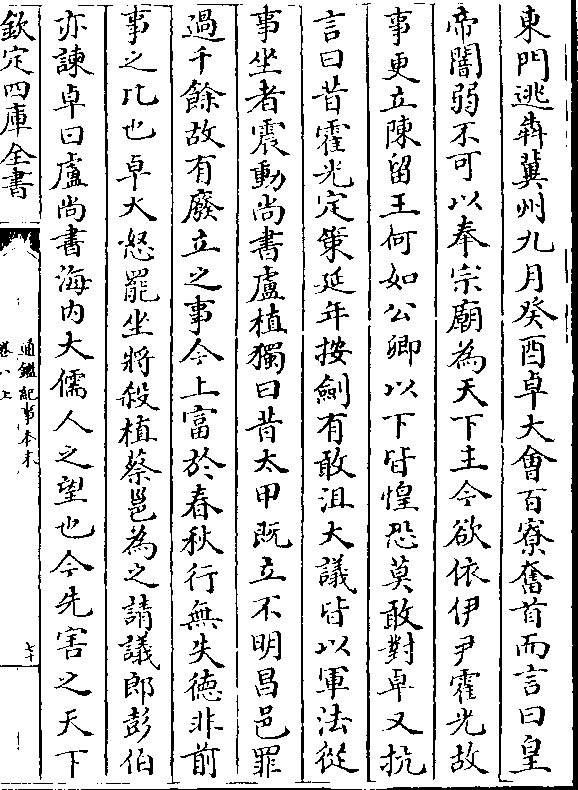 東門逃犇冀州九月癸酉卓大會百寮奮首而言曰皇
帝闇弱不可以奉宗廟為天下主今欲依伊尹霍光故
事更立陳留王何如公卿以下皆惶恐莫敢對卓又抗
言曰昔霍光定策延年按劍有敢沮大議皆以軍法從
事坐者震動尚書盧植獨曰昔太甲既立不明昌邑罪
過千餘故有廢立之事今上富於春秋行無失德非前
事之比也卓大怒罷坐將殺植蔡邕為之請議郎彭伯
亦諫卓曰盧尚書海内大儒人之望也今先害之天下
欽定四庫全書
通鑑紀事本末
卷八上